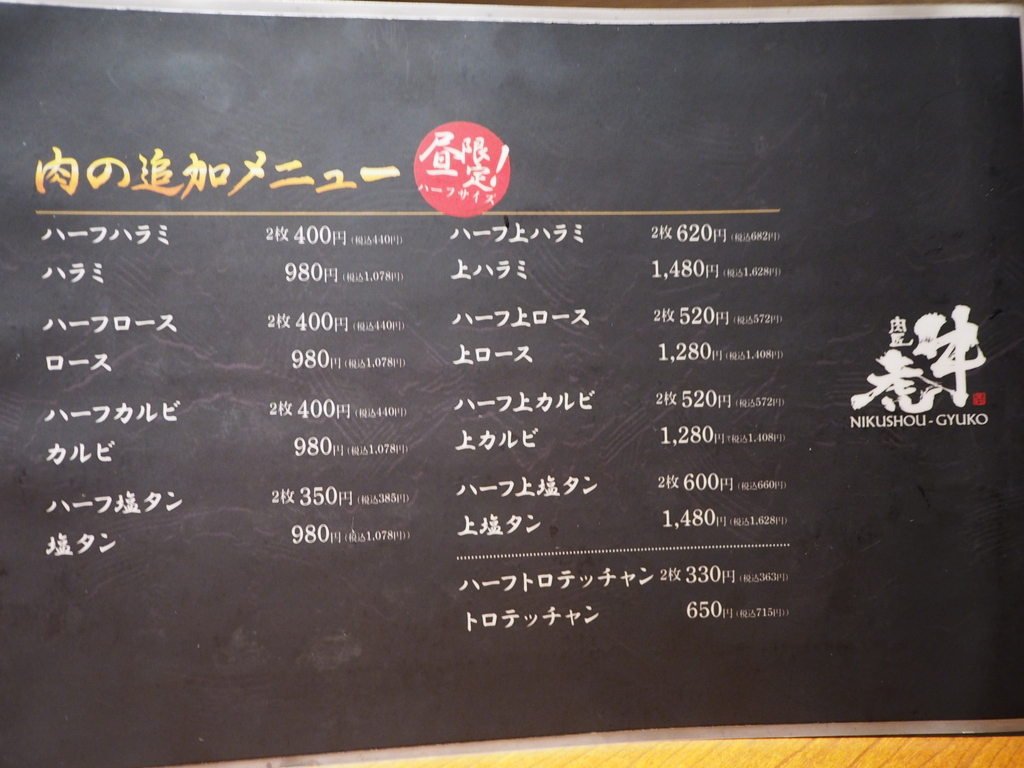 肉の追加メニュー
昼限定!
ハーフサイズ
ハーフハラミ 2枚 400円(税込440円)
ハラミ 980円(税込1,078円)
ハーフロース 2枚 400円(税込440円)
ロース 980円(税込1,078円)
ハーフカルビ 2枚 400円(税込440円)
カルビ 980円(税込1,078円)
ハーフ塩タン 2枚 350円(税込385円)
塩タン 980円(税込1,078円)
ハーフ上ハラミ 2枚 620円(税込682円)
上ハラミ 1,480円(税込1,628円)
ハーフ上ロース 2枚 520円(税込572円)
上ロース 1,280円(税込1,408円)
ハーフ上カルビ 2枚 520円(税込572円)
上カルビ 1,280円(税込1,408円)
ハーフ上塩タン 2枚 600円(税込660円)
上塩タン 1,480円(税込1,628円)
ハーフトロテッチャン 2枚 330円(税込363円)
トロテッチャン 650円(税込715円)
肉匠
牛虎
NIKUSHOU-GYUKO